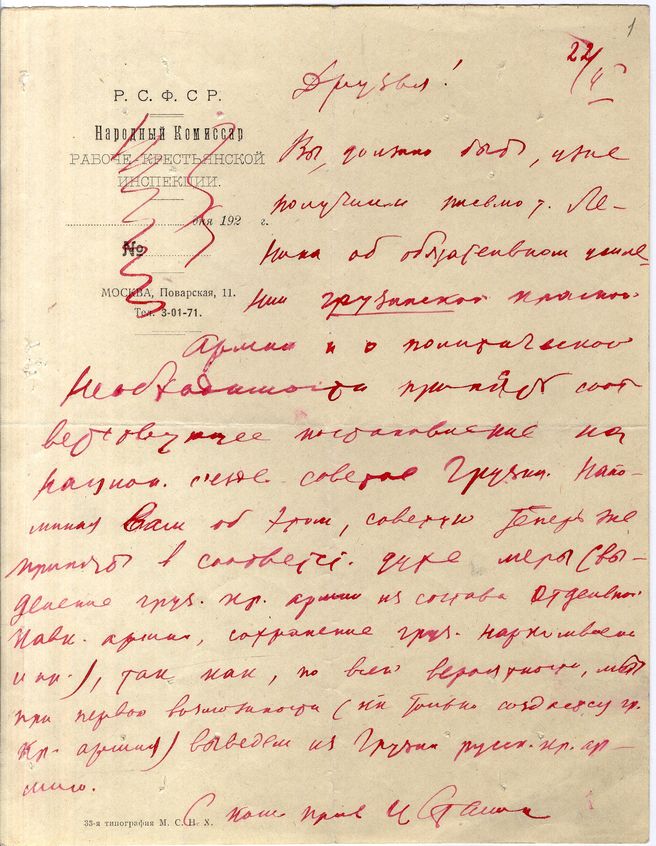 1
22/IV
Друзья!
Р. С. Ф. С Р.
Народный Комиссар
РАБОЧЕ-КРЕСТЬЯНСКОЙ
ИНСПЕКЦИИ.
дня 192 г.
№
МОСКВА, Поварская, 11.
Тел. 3-01-71.
Вы, должно быть, уже
получили письмо т. Ле-
нина об обязательном усиле-
нии грузинской красной
армии и о политической
необходимости принять соот
ветствующее постановление на
с'езде советов Грузии. Напо-
миная Вам об этом, советую теперь же
принять в соответст. духе меры (вы-
деление груз. кр. армии из состава Отдельной
Кавк. армии, сохранение груз. наркомвоена
и пр.), так как, по всей вероятности, мы
при первой возможности (как только создастся гр.
Кр. армия) выведем из Грузии русск. кр. ар-
мию.
С ком прив И Сталин
35-я типография М. С. Н. Х.